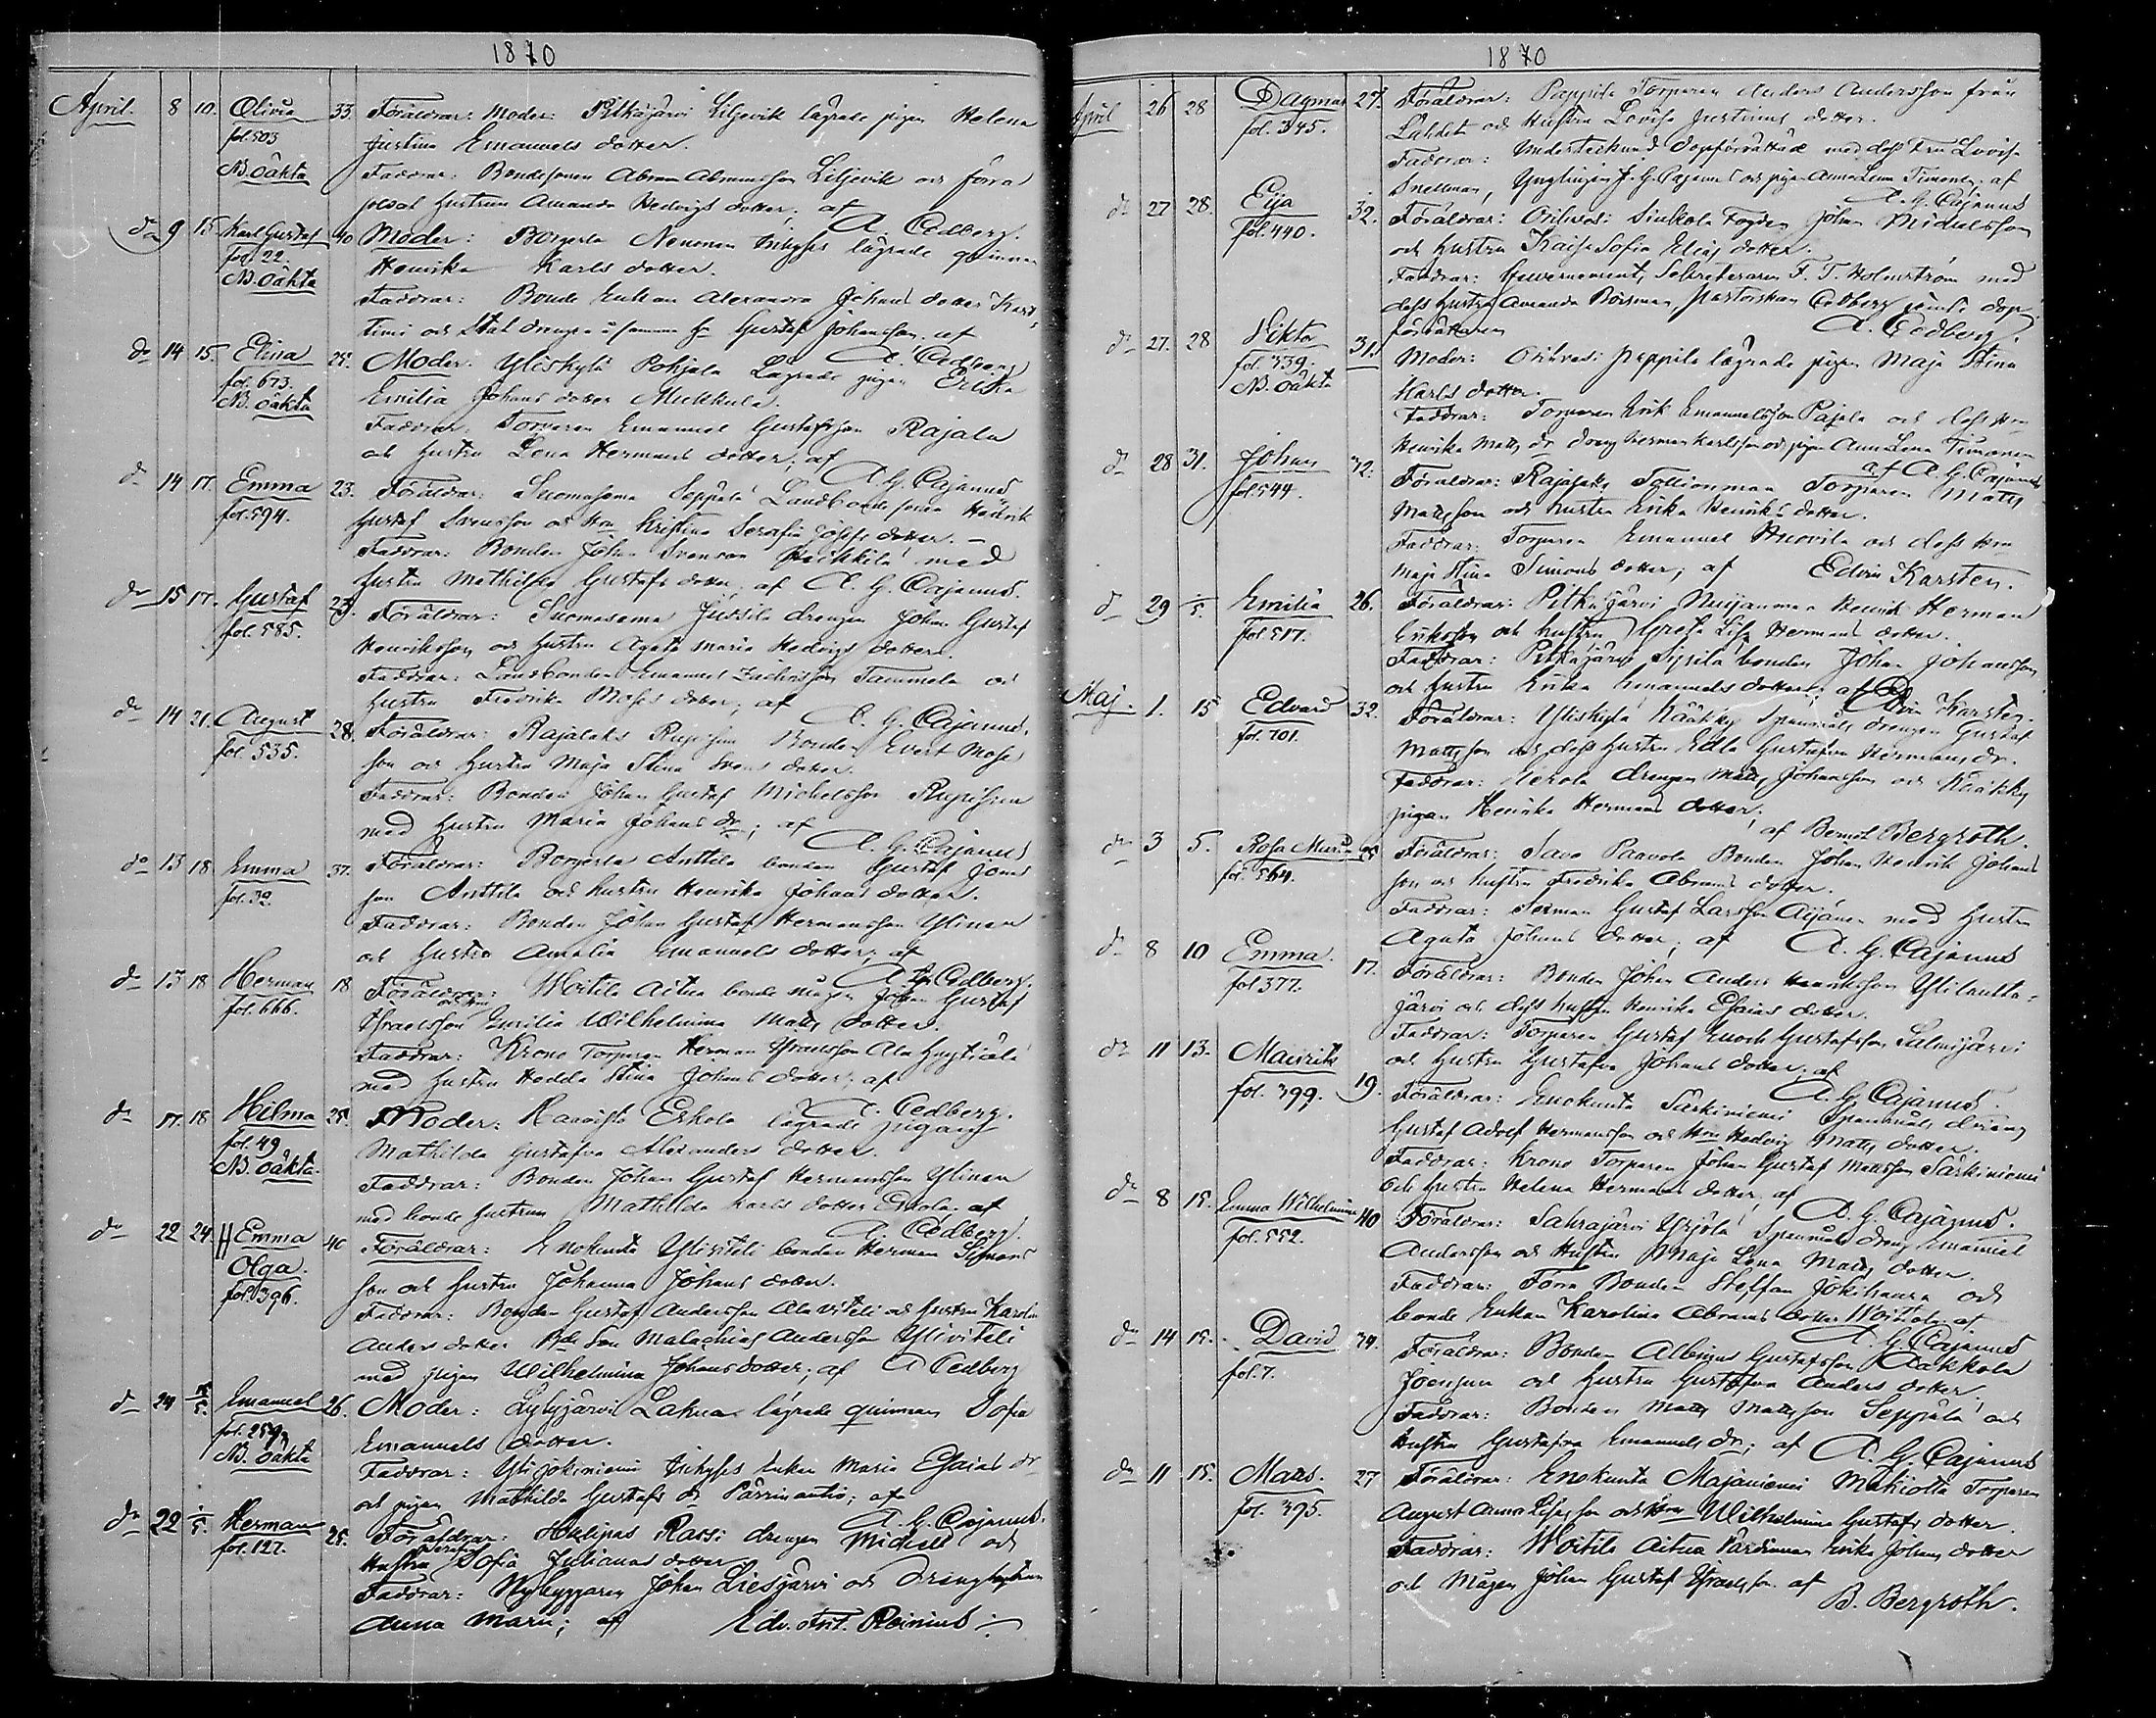 1870
April. 8 10. Olivia 33. Föräldrar: Moder: Pitkäjärvi Liljevik lägrade pigan Helena
fol. 503 Justina Emanuels dotter.
NB. oäkta Faddrar: Bondesonen Abram Abramsson Liljevik och förra
hustrun Amanda Hedvigs dotter; af A. Cedberg.
do 9 15 Karl Gustaf 40 Moder: Nenonen Inhyses lägrade qvinnan
fol. 22. Henrika Karls dotter.
NB. oäkta Faddrar: Bonde Enkan Alexandra Johans dotter
och Stal drengen Gustaf Johansson. af
A. Cedberg
do 14 15. Elina 25. Moder. Yliskylä Pohjala Lägrade pigan Erika
fol. 673. Emilia Johans dotter Mukkala.
NB. oäkta Faddrar. Torparen Emanuel Gustafsson Rajala
och hustru Lena Hermans dotter; af
A. G. Cajanus
do 14 17. Emma 23. Föräldrar: Suomasema Seppälä Landbonde sonen Henrik
fol. 594. Gustaf Svensson och Hu Kristina Serafia Josefs dotter. –
Faddrar: Bonden Johan Svensson Heikkilä med
hustru Mathilda Gustafs dotter, af A. G. Cajanus.
do 15 17. Gustaf 23. Föräldrar: Suomasema Jussila drengen Johan Gustaf
fol. 585. Henriksson och hustru Agata Maria Hedvigs dotter.
Faddrar: Landbonden Emanuel Tammela och
hustru Fredrika Moses dotter; af A. G. Cajanus.
do 14 21. August 28. Föräldrar: Rajalaks Bonden Evert Moses
fol. 535. son och hustru Maja Stina dotter.
Faddrar: Bonden Johan Gustaf Michelsson
med hustru Maria Johans dr; af
A. G. Cajanus
do 13 18. Emma 37. Föräldrar: Anttila bonden Gustaf Jonas
fol. 32. son Anttila och hustru Henrika Johans dotter.
Faddrar: Bonden Johan Gustaf Hermansson Ylinen
och hustru Amalia Emanuels dotter, af
A. Cedberg.
do 13 18 Herman 18 Föräldrar: Woitila Aitua bonde mågen Johan Gustaf
fol. 666. Israelsson Emilia Wilhelmina Matts dotter.
Faddrar: Krono Torparen Herman Israelsson
med hustru Hedda Stina Johans dotter; af
A. Cedberg.
do 17. 18 Hilma 25. Moder: Eskola lägrade pigan
fol. 49 Mathilda Gustafva Alexanders dotter.
NB. oäkta. Faddrar: Bonden Johan Gustaf Hermansson Ylinen
med bonde hustrun Mathilda Karls dotter Eskola. af
A. Cedberg.
do 22 24. Emma 40 Föräldrar: Enokunta Yliviteli bonden Herman Simons
Olga. son och hustru Johanna Johans dotter.
fol. 396. Faddrar: Bonden Gustaf Andersson Ala viteli och hustru Karolina
Anders dotter Bde Son Malachias Andersson Yliviteli
med pigan Wilhelmina Johans dotter; af A Cedberg
do 24 Emanuel 26. Moder: Lylyjärvi Lakua lägrade qvinnan Sofia
fol. 259 Emanuels dotter.
NB. oäkta Faddrar: Yli jokiniemi Inhyses Enkan Maria Esaias dr
och pigan Mathilda Gustafs dr; af
A. G. Cajanus.
do 22 1/5. Herman 25. Föräldrar: Rassi drengen Michel och
fol. 127. Hustru Serafia Sofia Julianas dotter
Faddrar: Nybyggaren Johan Liesjärvi och dreng hustrun
Anna Maria; af Edv. Ant. Reinius

1870
April 26 28 Dagmar 27. Föräldrar: Peppila Torparen Anders Andersson från
fol. 345. Lahdet och Hustru Lovisa Justinas dotter.
Faddrar: Undertecknad dopförrättare med dess Fru Lovisa
Snellman, Ynglingen J. G. Cajanus och pigan Anna Lena Timonen. af
A. G. Cajanus
do 27 28. Eija 32. Föräldrar: Orihvesi Sinkola Fogden Johan Michelsson
fol. 440. och hustru Kaisa Sofia Elias dotter.
Faddrar: Guvernements Sekreteraren F. T. Holmström med
dess hustru Amanda Pastorskan Cedberg jemte dop
förrättaren A. Cedberg.
do 27. 28 Viktor 31. Moder: Orihvesi Peppila lägrade pigan Maja Stina
fol. 339. Karls dotter.
NB. oäkta Faddrar: Torparen Erik Emanuelsson Pajala och dess Hu
Henrika Matts dr dreng Herman Karlsson och pigan Anna Lena Timonen
af A. G. Cajanus
do 28 31. Johan 32. Föräldrar: Rajalaks Torparen Matts
fol. 544. Mattsson och hustru Erika Henriks dotter.
Faddrar: Torparen Emanuel och dess Hu
Maja Stina Simons dotter; af Edvin Karsten.
do 29 1/5. Emilia 26. Föräldrar: Pitkäjärvi Henrik Herman
fol. 517. Eriksson och hustru Greta Lisa Hermans dotter.
Faddrar: Pitkäjärvi Sipilä bonden Johan Johansson
och hustru Erika Emanuels dotter; af Edvin Karsten.
Maj. 1. 15 Edvard 32. Föräldrar: Yliskylä Näätky Spanmåls drengen Gustaf
fol. 701. Mattsson och dess hustru Edla Gustafva Hermans dr.
Faddrar: drengen Matts Johansson och Näätky
pigan Henrika Hermans dotter;
af Berndt Bergroth.
do 3 5. Rosa Maria Föräldrar: Savo Paavola Bonden Johan Henrik Johans
fol. 564. son och hustru Fredrika Abrams dotter.
Faddrar: Gustaf Larsson Äijänen med hustru
Agata Johans dotter; af A. G. Cajanus
do 8 10 Emma. 17. Föräldrar: Bonden Johan Anders Henriksson
fol 377. järvi och dess hustru Henrika Esaias dotter.
Faddrar: Torparen Gustaf Enoch Gustafsson Salmijärvi
och hustru Gustafva Johans dotter; af
A. G. Cajanus.
do 11 13. Mauritz 19. Föräldrar: Enokunta Särkiniemi Spanmåls dreng
fol. 399. Gustaf Adolf Hermansson och Hu Hedvig Matts dotter.
Faddrar: Krono Torparen Johan Gustaf Mattsson Särkiniemi
och hustru Helena Hermans dotter, af
A. G. Cajanus.
do 8 15. Emma Wilhelmina 40 Föräldrar: Sahrajärvi Yrjölä Spanmåls dreng Emanuel
fol. 552. Andersson och Hustru Maja Lena Matts dotter.
Faddrar: Förra Bonden Steffan Jokihaara och
bonde Enkan Karolina Abrams dotter Woitila. af
A. G. Cajanus
do 14 15. David 34. Föräldrar: Bonden Albinus Gustafsson Aakkola
fol. 7. och hustru Gustafva Anders dotter.
Faddrar: Bonden Matts Mattsson Seppälä och
Hustru Gustafva Emanuels dr; af A. G. Cajanus
do 11 15. Mats. 27 Föräldrar: Enokunta Majaniemi Torparen
fol. 395. August och Hu Wilhelmina Gustafs dotter.
Faddrar: Woitila Aitua Värdinnan Erika Johans dotter
och Mågen Johan Gustaf Israelsson. af
B. Bergroth.